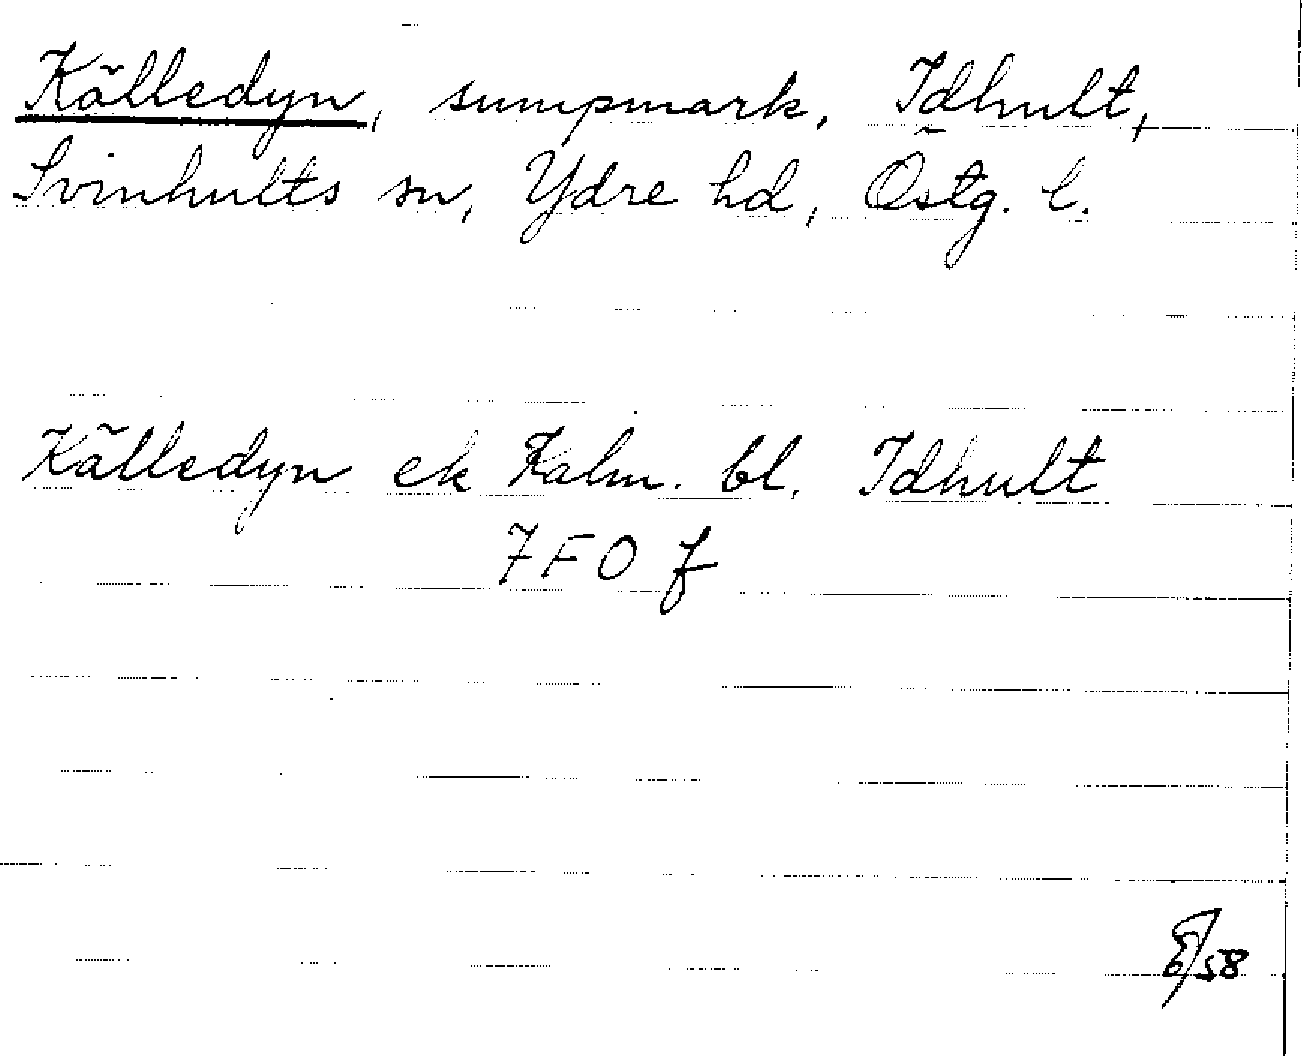 Källedyn, sumpmark, Idhult,
Svinhults sn, Ydre hd, Östg. l.
Källedyn ek Kalm. bl. Idhult
7 F 0 f
/58